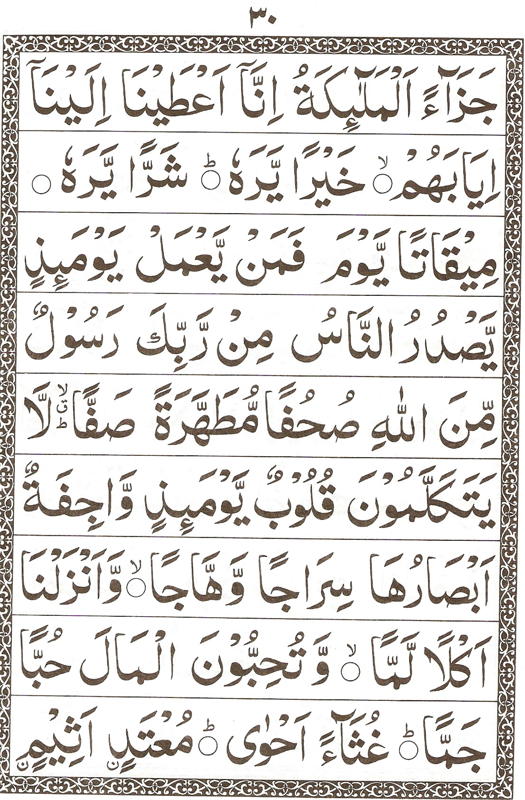 ٣٠
جَزَآءً اَلْمَلٰٓئِكَةُ اِنَّاۤ اَعْطَيْنَا اِلَيْنَاۤ
اِيَابَهُمْ ۙ○ خَيْرًا يَّرَهٗ ؕ○ شَرًّا يَّرَهٗ ○
مِيْقَاتًا يَّوْمَ فَمَنْ يَّعْمَلْ يَوْمَئِذٍ
يَّصْدُرُ النَّاسُ مِنْ رَّبِّكَ رَسُوْلٌ
مِّنَ اللّٰهِ صُحُفًا مُّطَهَّرَةً صَفًّا لَّا
يَتَكَلَّمُوْنَ قُلُوْبٌ يَّوْمَئِذٍ وَّاجِفَةٌ
اَبْصَارُهَا سِرَاجًا وَّهَّاجًا ۙ○ وَّاَنْزَلْنَا
اَكْلًا لَّمًّا ۙ○ وَّ تُحِبُّوْنَ الْمَالَ حُبًّا
جَمًّا ؕ○ غُثَآءً اَحْوٰى ؕ○ مُعْتَدٍ اَثِيْمٍ